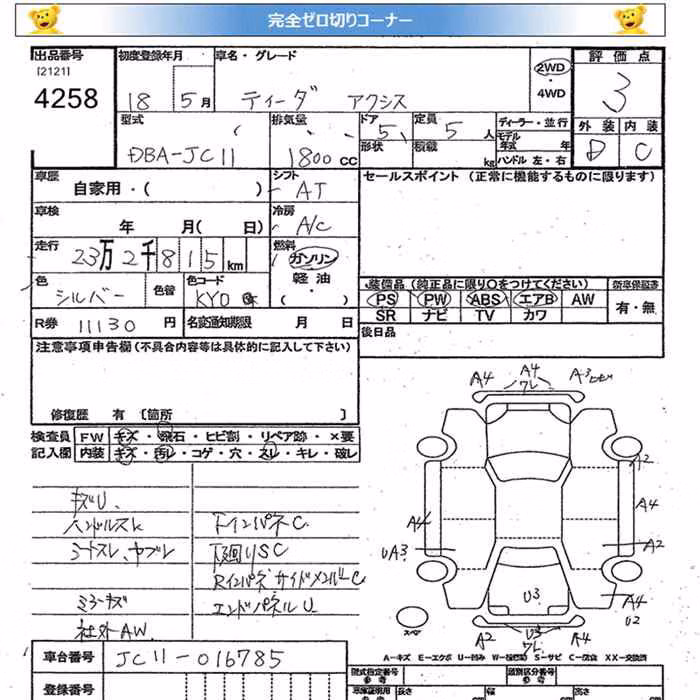 完全ゼロ切りコーナー
出品番号 初度登録年月 車名・グレード 評価点
[2121]
4258 18 5月 ティーダ アクシス 2WD・4WD 3
型式 排気量 ドア 定員 ディーラー・並行 外装 内装
DBA-JC11 1800cc 5 5人 モデル年式 年 D C
形状 積載 kg ハンドル 左・右
車歴 シフト セールスポイント (正常に機能するものに限ります)
自家用・( ) AT
車検 冷房
年 月( 日) A/C
走行 燃料
23万2千815km ガソリン
色 色替 色コード 軽油
シルバー KY0 ・( )
装備品(純正品に限り○をつけてください) 新車保証書
PS PW ABS エアB AW 有・無
SR ナビ TV カワ
R券 11130円 名変通知期限 月 日 後日品
注意事項申告欄(不具合内容等は具体的に記入して下さい)
修復歴 有 [箇所 ]
検査員 FW キズ・飛石・ヒビ割・リペア跡・×要
記入欄 内装 キズ・汚レ・コゲ・穴・スレ・キレ・破レ
キズU.
ハンドルスレ
シートスレ、ヤブレ
ミラーキズ
社外AW.
下回りSC
RインパネサイドメンバーC
エンドパネルU
A4 A4 A3ヒビ
ワレ
A2
A4 A4
UA3 A2
U3 A4
U2
スペア
A2 U3 A4
ワレ
A-キズ E-エクボ U-凹み S-サビ C-腐食 XX-交換済
車台番号 JC11-016785
登録番号
型式指定番号 類別区分番号
参考 参考
長さ 幅 高さ